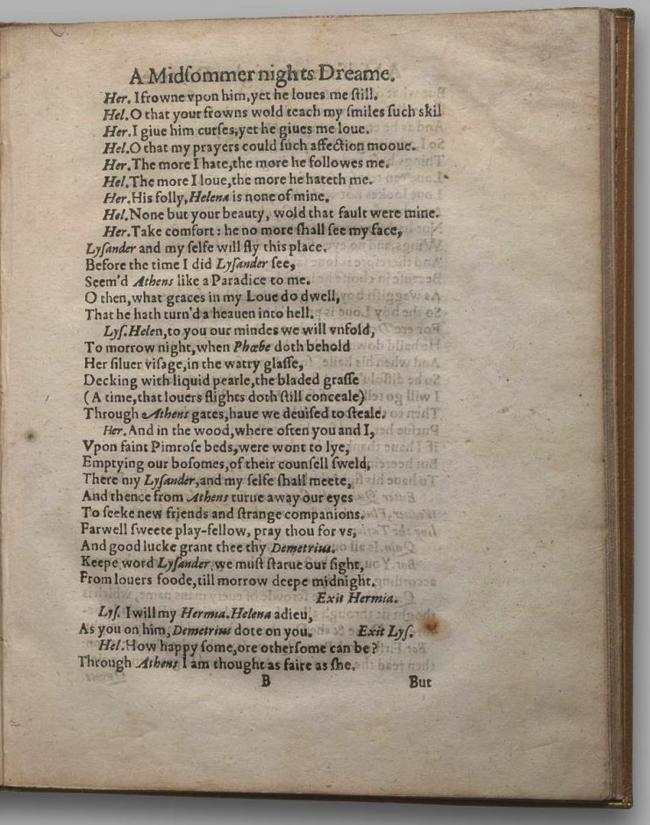 A Midſommer nights Dreame.
Her. I frowne vpon him, yet he loues me ſtill.
Hel. O that your frowns wold teach my ſmiles ſuch skil
Her. I giue him curſes, yet he giues me loue.
Hel. O that my prayers could ſuch affection mooue.
Her. The more I hate, the more he followes me.
Hel. The more I loue, the more he hateth me.
Her. His folly, Helena is none of mine.
Hel. None but your beauty, wold that fault were mine.
Her. Take comfort: he no more ſhall ſee my face,
Lyſander and my ſelfe will fly this place.
Before the time I did Lyſander ſee,
Seem'd Athens like a Paradice to me.
O then, what graces in my Loue do dwell,
That he hath turn'd a heauen into hell.
Lyſ. Helen, to you our mindes we will vnfold,
To morrow night, when Phœbe doth behold
Her ſiluer viſage, in the watry glaſſe,
Decking with liquid pearle, the bladed graſſe
(A time, that louers flights doth ſtill conceale)
Through Athens gates, haue we deuiſed to ſteale.
Her. And in the wood, where often you and I,
Vpon faint Pimroſe beds, were wont to lye,
Emptying our boſomes, of their counſell ſweld,
There my Lyſander, and my ſelfe ſhall meete,
And thence from Athens turne away our eyes
To ſeeke new friends and ſtrange companions.
Farwell ſweete play-fellow, pray thou for vs,
And good lucke grant thee thy Demetrius.
Keepe word Lyſander, we muſt ſtarue our ſight,
From louers foode, till morrow deepe midnight.
Exit Hermia.
Lyſ. I will my Hermia. Helena adieu,
As you on him, Demetrius dote on you. Exit Lyſ.
Hel. How happy ſome, ore otherſome can be?
Through Athens I am thought as faire as ſhe.
B But